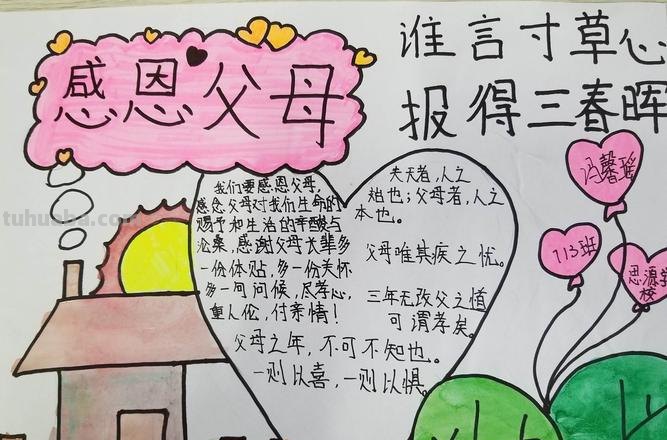 感恩父母
谁言寸草心
报得三春晖
我们要感恩父母，
感念父母对我们生命的
赐予和生活的辛酸与
沧桑，感谢父母长辈多
一份体贴，多一份关怀
多一句问候，尽孝心，
重人伦，付亲情！
夫天者，人之
始也；父母者，人之
本也。
父母唯其疾之忧。
三年无改父之道
可谓孝矣。
父母之年，不可不知也。
一则以喜，一则以惧。
冯馨瑶
113班
思源学
校
tuhusba.com